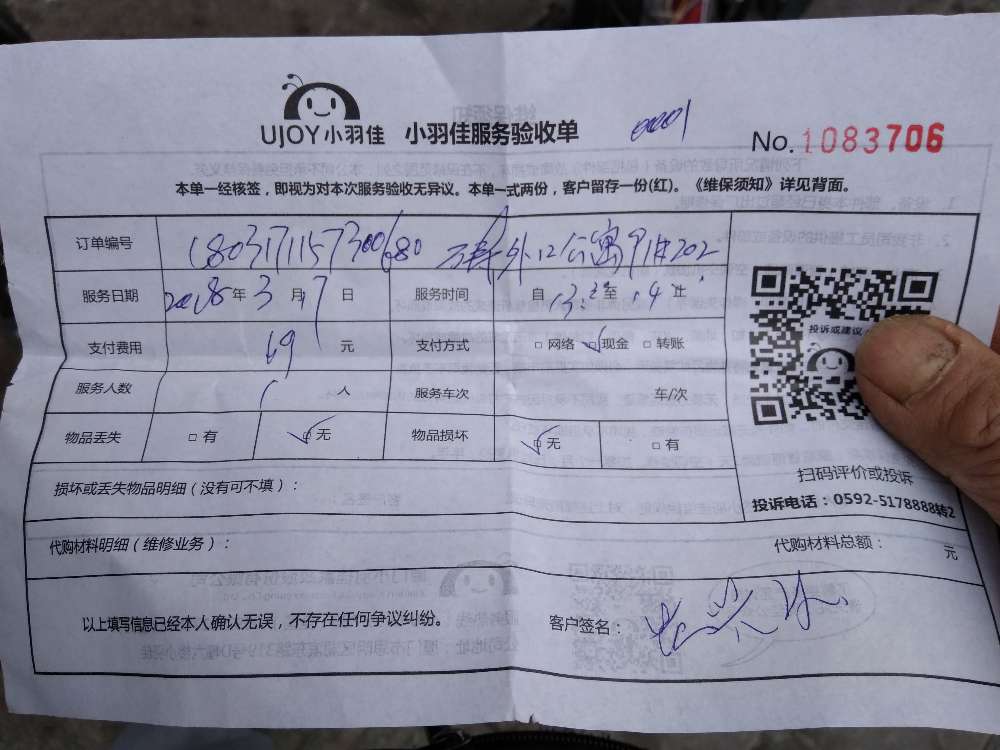 UJOY小羽佳 小羽佳服务验收单 0001
No. 1083706
本单一经核签，即视为对本次服务验收无异议。本单一式两份，客户留存一份(红)。《维保须知》详见背面。
订单编号 1803171157300680 外12公寓 202
服务日期 2018年3月17日 服务时间 自13 至14
支付费用 69 元 支付方式 □ 网络 ☑ 现金 □ 转账
服务人数 1 人 服务车次 车/次
物品丢失 □ 有 ☑ 无 物品损坏 ☑ 无 □ 有
投诉或建议
扫码评价或投诉
投诉电话：0592-5178888转2
损坏或丢失物品明细（没有可不填）：
代购材料明细（维修业务）： 代购材料总额： 元
以上填写信息已经本人确认无误，不存在任何争议纠纷。 客户签名：